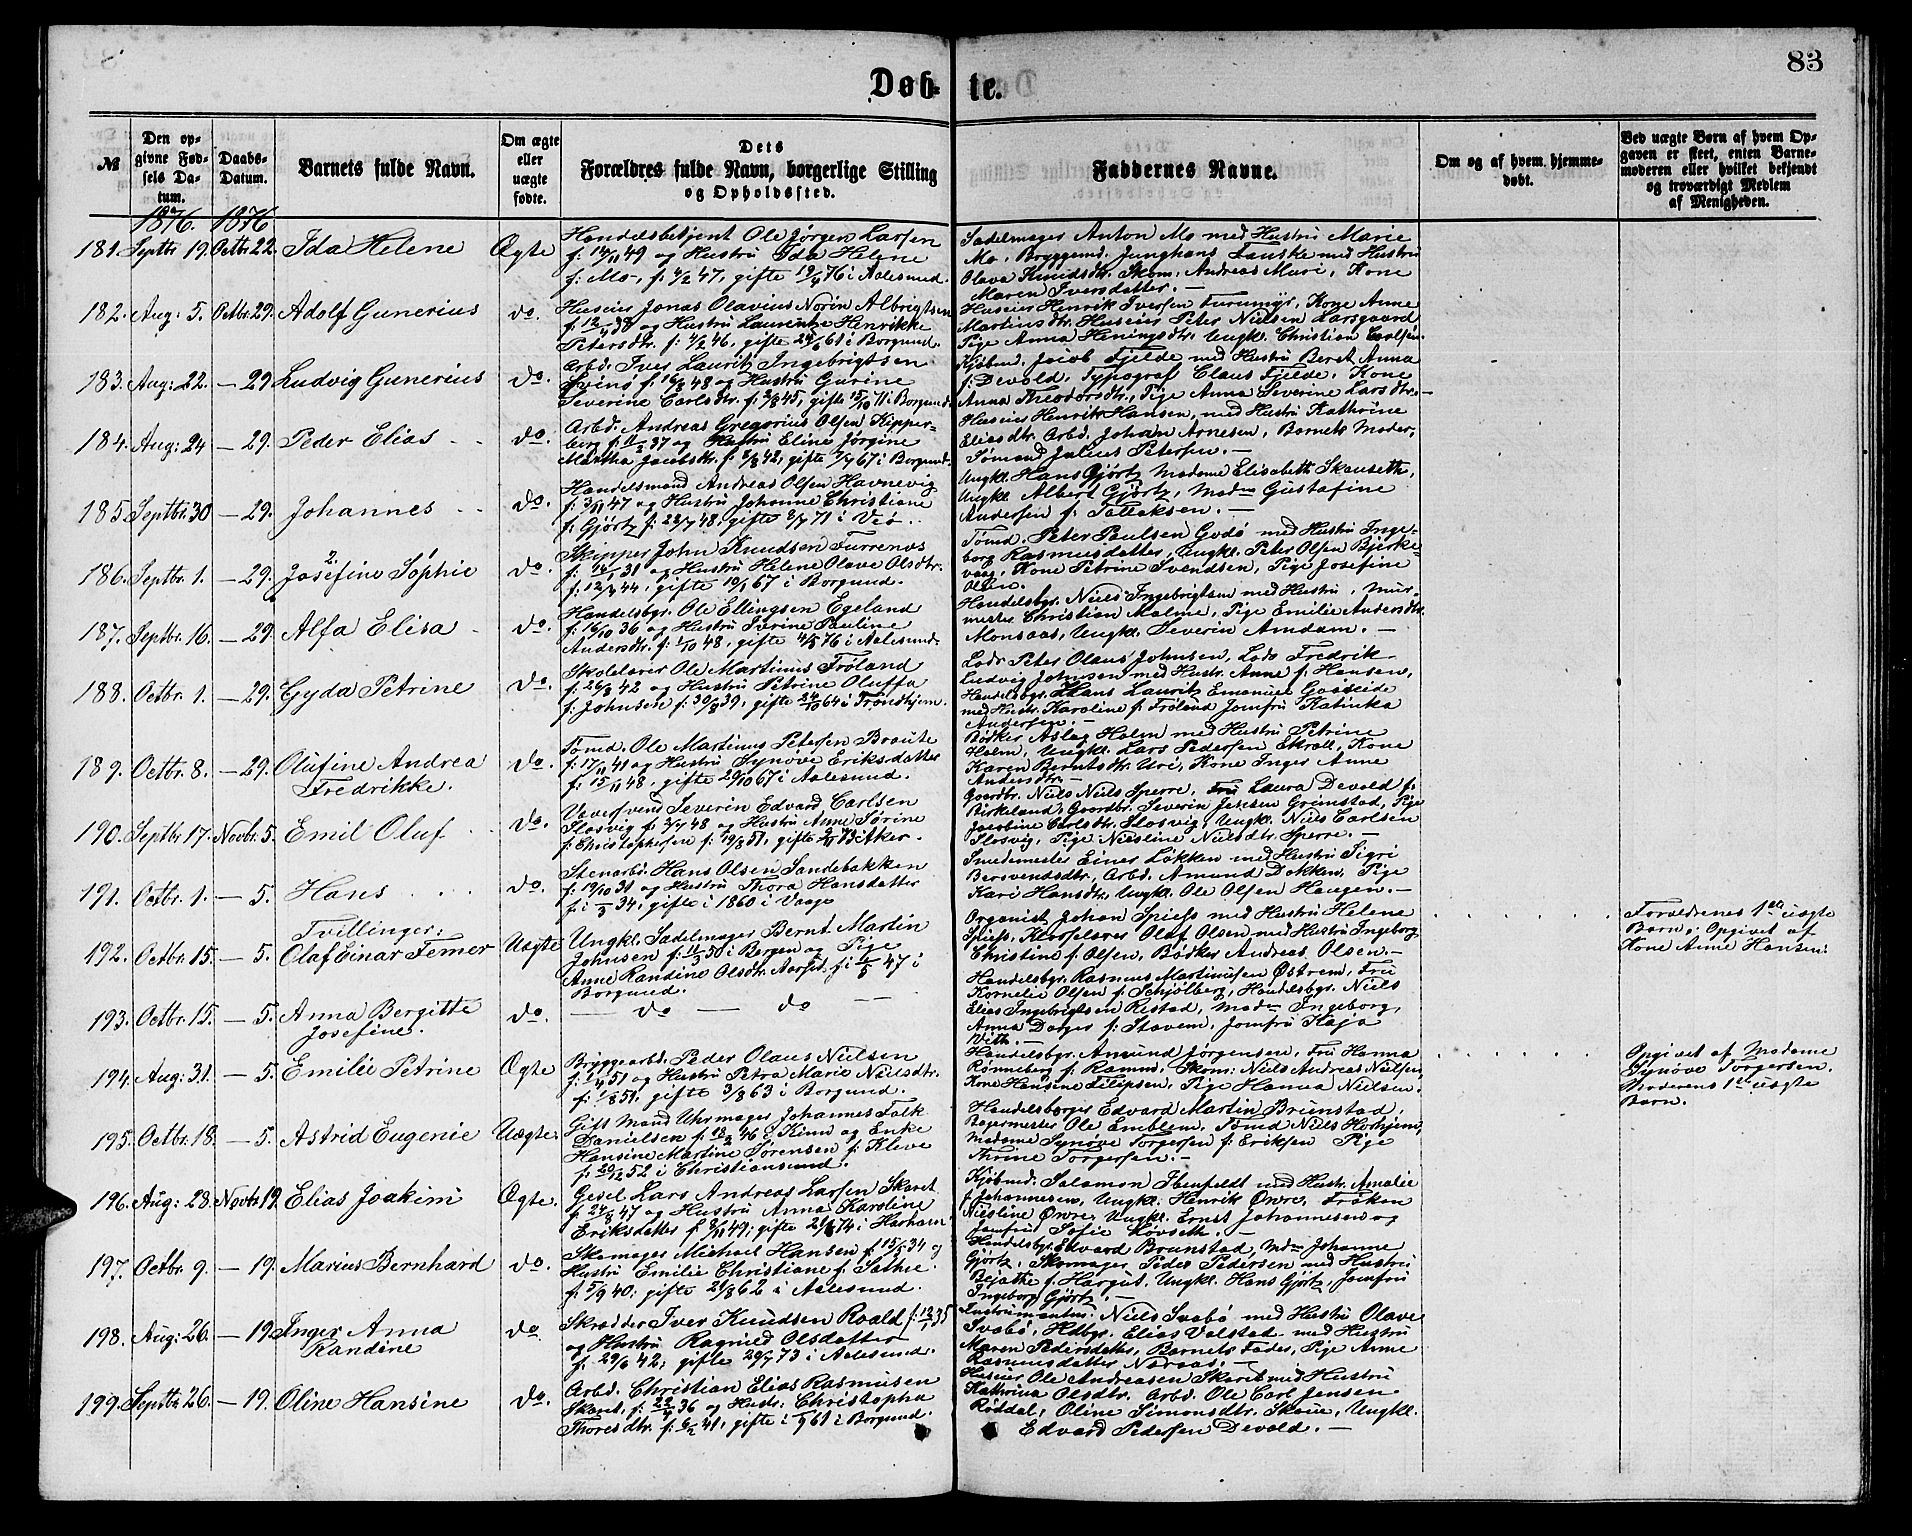 83
Døb- te.
№
Den opgivne Fødsels Datum.
Daabs-Datum.
Barnets fulde Navn.
Om ægte eller uægte fødte.
Dets Forældres fulde Navn, borgerlige Stilling og Opholdssted.
Faddernes Navne.
Om og af hvem hjemmedøbt.
Ved uægte Børn af hvem Opgaven er skeet, enten Barnemoderen eller hvilket bekjendt og troværdigt Medlem af Menigheden.
1876. 1876
181. Septbr 19. Octbr. 22. Ida Helene Ægte
Handelsbetjent Ole Jørgen Larsen
f: 14/11 49 og Hustru Ida Helene
f: Mo, f: 4/2 47, gifte 19/4 76 i Aalesund.
Sadelmager Anton Mo med Hustru Marie
Mo, Bryggemd. Junghans Fauske med Hustru
Olava Knudsdtr. Skom: Andreas Muri, Kone
Maren Iversdatter. —
182. Aug: 5. Octbr. 29. Adolf Gunerius do.
Huseier Jonas Olavius Norin Albrigtsen
f. 12/4 38 og Hustru Laurentze Henrikke
Petersdtr. f: 4/2 46, gifte 24/6 61 i Borgund.
Huseier Henrik Iversen Furumyr, Kone Anne
Martinusdtr. Huseier Peter Nielsen Larsgaard
Pige Anna Heningsdtr. Ungkl. Christian Carlsen.
183. Aug: 22. — 29 Ludvig Gunerius do.
Arbd. Iver Lauritz Ingebrigtsen
Svinø f: 16/8 48 og Hustru Gurine
Severine Carlsdtr. f: 2/8 45, gifte 15/10 71 i Borgund.
Kjøbmd. Jacob Fjelde med Hustru Beret Anna
f: Devold, Typograf Claus Fjelde, Kone
Anna Theodorsdtr., Pige Anna Severine Larsdtr. —
184. Aug: 24 — 29. Peder Elias do.
Arbd. Andreas Gregorius Olsen Kipper-
berg f: 11/2 37 og Hustru Eline Jørgine
Martha Jacobsdtr. f: 2/8 42, gifte 7/7 67 i Borgund.
Huseier Henrik Hansen, med Hustru Kathrine
Eliasdtr. Arbd. Johan Arnesen, Barnets Moder,
Sømand Julius Petersen. —
185. Septbr. 30 — 29. Johannes do.
Handelsmand Andreas Olsen Havnevig
f: 3/11 47 og Hustru Johanne Christiane
f: Gjørtz f: 22/7 48, gifte 2/7 71 i Veø.
Ungkl. Hans Gjørtz Madame Elisabeth Skauseth,
Ungkl. Albert Gjørtz, Madm Gustafine
Andersen f: Tollaksen. —
186. Septbr. 1. — 29. Josefine Sophie do.
Skipper John Knudsen Furrenæs
f: 14/1 31 og Hustru Helene Olave Olsdtr.
f: 12/4 44, gifte 19/1 67 i Borgund.
Tømd. Peter Paulsen Godø med Hustru Inge-
borg Rasmusdatter, Ungkl. Peter Olsen Bjerke-
vaag, Kone Petrine Svendsen, Pige Josefine
Olsen.
187. Septbr. 16. — 29. Alfa Elisa do.
Handelsbgr. Ole Ellingsen Egeland
f: 16/10 36 og Hustru Iverine Pauline
Andersdtr. f: 1/10 48, gifte 4/5 76 i Aalesund.
Handelsbgr. Niels Ingebrigtsen med Hustru, Mur-
mester Christian Malme, Pige Emilie Andersdtr.
Monsaas, Ungkl. Severin Amdam. —
188. Octbr. 1. — 29. Gyda Petrine do.
Skolelærer Ole Martinus Frøland
f: 26/8 42 og Hustru Petrine Oluffa
f: Johnsen f: 30/8 39, gifte 24/10 64 i Trondhjem.
Lods Peter Olaus Johnsen, Lods Fredrik
Ludvig Johnsen med Hustr. Anne f: Hansen,
Handelsbgr. Hans Lauritz Emanuel Gaaseide
med Hustr. Karoline f: Frøland Jomfru Katinka
Andersen. —
189. Octbr. 8. — 29. Olufine Andrea Fredrikke. do.
Tømd. Ole Martinus Petersen Braute
f: 17/11 41 og Hustru Synøve Eriksdatter
f: 15/11 48, gifte 29/10 67 i Aalesund.
Bødker Aslag Holm med Hustru Petrine
Holm, Ungkl. Lars Pedersen Ekroll, Kone
Karen Berntsdtr. Uri, Kone Inger Anne
Andersdtr. —
190. Septbr 17. Novbr. 5. Emil Oluf do.
Væversvend Severin Edvard Carlsen
Slosvig f: 3/7 48 og Hustru Anne Sørine
f: Christophersen f: 19/8 51, gifte 2/11 73 i Aker.
Gaardbr. Niels Niels Sperre, Fru Laura Devold f:
Birkeland, Gaardbr. Severin Jensen Grimstad, Pige
Jacobine Carlsdtr. Slosvig, Ungkl. Niels Carlsen
Slosvig, Pige Nielsine Nielsdtr. Sperre. —
191. Octbr. 1. — 5. Hans do.
Stenarbd. Hans Olsen Sandebakken
f: 19/10 31 og Hustru Thora Hansdatter
f: i 1/3 34, gifte i 1860 i Vaage
Smedemester Einer Løkken med Hustru Sigri
Bersvendsdtr, Arbd. Amund Dokken, Pige
Kari Hansdtr. Ungkl. Ole Olsen Haugen. —
Tvillinger:
192. Octbr. 15. — 5. Olaf Einar Femer Uægte
Ungkl. Sadelmager Bernt Martin
Johnsen f: 11/3 50 i Bergen og Pige
Anne Randine Olsdtr. Aarset. f: i 4/5 47 i
Borgund.
Organist Johan Spiess med Hustru Helene
Spiess, Kirkesanger Olaf Olsen med Hustru Ingeborg
Christine f: Olsen, Bødker Andreas Olsen. —
Forældrenes 1ste uægte
Barn; Opgivet af
Kone Anne Hansen.
193. Octbr. 15. — 5. Anna Bergitte Josefine. do.
— do — do —
Handelsbgr. Rasmus Martinusen Østrem, Fru
Kornelie Olsen f: Schjølberg, Handelsbgr. Niels
Elias Ingebrigtsen Restad, Madm Ingeborg
Anna Dorger f: Stavem, Jomfru Kaja
With. —
194. Aug: 31. — 5. Emilie Petrine Ægte
Bryggearbd. Peder Olaus Nielsen
f: 1/4 51 og Hustru Petra Marie Nielsdtr.
f: 1/8 51, gifte 3/8 63 i Borgund.
Handelsbgr. Amund Jørgensen, Fru Hanna
Rønneberg f: Ramm, Skom: Niels Andreas Nielsen,
Kone Hansine Filipsen, Pige Hanna Nielsen.
Opgivet af Madame
Synøve Torgersen.
Moderens 1ste uægte
Barn.
195. Octbr. 18. — 5. Astrid Eugenie Uægte.
Gift Mand Uhrmager Johannes Falk
Danielsen f: 18/2 46 i Kinn og Enke
Hansine Martine Sørensen f: Kleve
f: 20/12 52 i Christiansund.
Handelsborger Edvard Martin Brunstad,
Bagermester Ole Emblem, Tømd Niels Horhjem,
Madame Synøve Torgersen f: Eriksen Pige
Thrine Torgersen. —
196. Aug: 28. Novbr. 19. Elias Joakim Ægte.
Gesel Lars Andreas Larsen Skaret
f: 24/8 47 og Hustru Anna Karoline
Eriksdatter f: 8/11 49; gifte 21/6 74 i Harham.
Kjøbmd. Salamon Ibenfeldt med Hustr. Amalie
f: Johannesen, Ungkl. Henrik Øvre, Frøken
Nielsine Øvre, Ungkl. Ernst Johannesen og
Jomfru Sofie Løvseth. —
197. Octbr. 9. — 19. Marius Bernhard do.
Skomager Michael Hansen f: 15/5 34 og
Hustru Emilie Christiane f: Sathre.
f: 5/9 40; gifte 21/8 62 i Aalesund.
Handelsbgr. Edvard Brunstad, Mdm Johanne
Gjørtz, Skomager Peder Pedersen med Hustru
Bejatte f: Hargut, Ungkl. Hans Gjørtz, Jomfru
Ingeborg Gjørtz. —
198. Aug: 26. — 19. Inger Anna Randine do.
Skrædder Iver Knudsen Roald f: 12/1 35
og Hustru Ragnild Olsdatter
f: 29/6 42; gifte 29/7 73 i Aalesund.
Instrumentm: Niels Svabø med Hustru Olave
Svabø, Hdbgr. Elias Valstad med Hustru
Maren Pedersdatter, Barnets Fader, Pige Anne
Rasmusdatter Noraas. —
199. Septbr 26. — 19. Oline Hansine do.
Arbd. Christian Elias Rasmusen
Skaret f: 22/4 36 og Hustr. Christopha
Thoresdtr. f: 6/2 41, gifte i 1/9 61 i Borgund.
Huseier Ole Andreasen Skare med Hustru
Kathrina Olsdtr. Arbd. Ole Carl Jensen
Røddal, Oline Simonsdtr. Skare, Ungkl.
Edvard Pedersen Devold. —